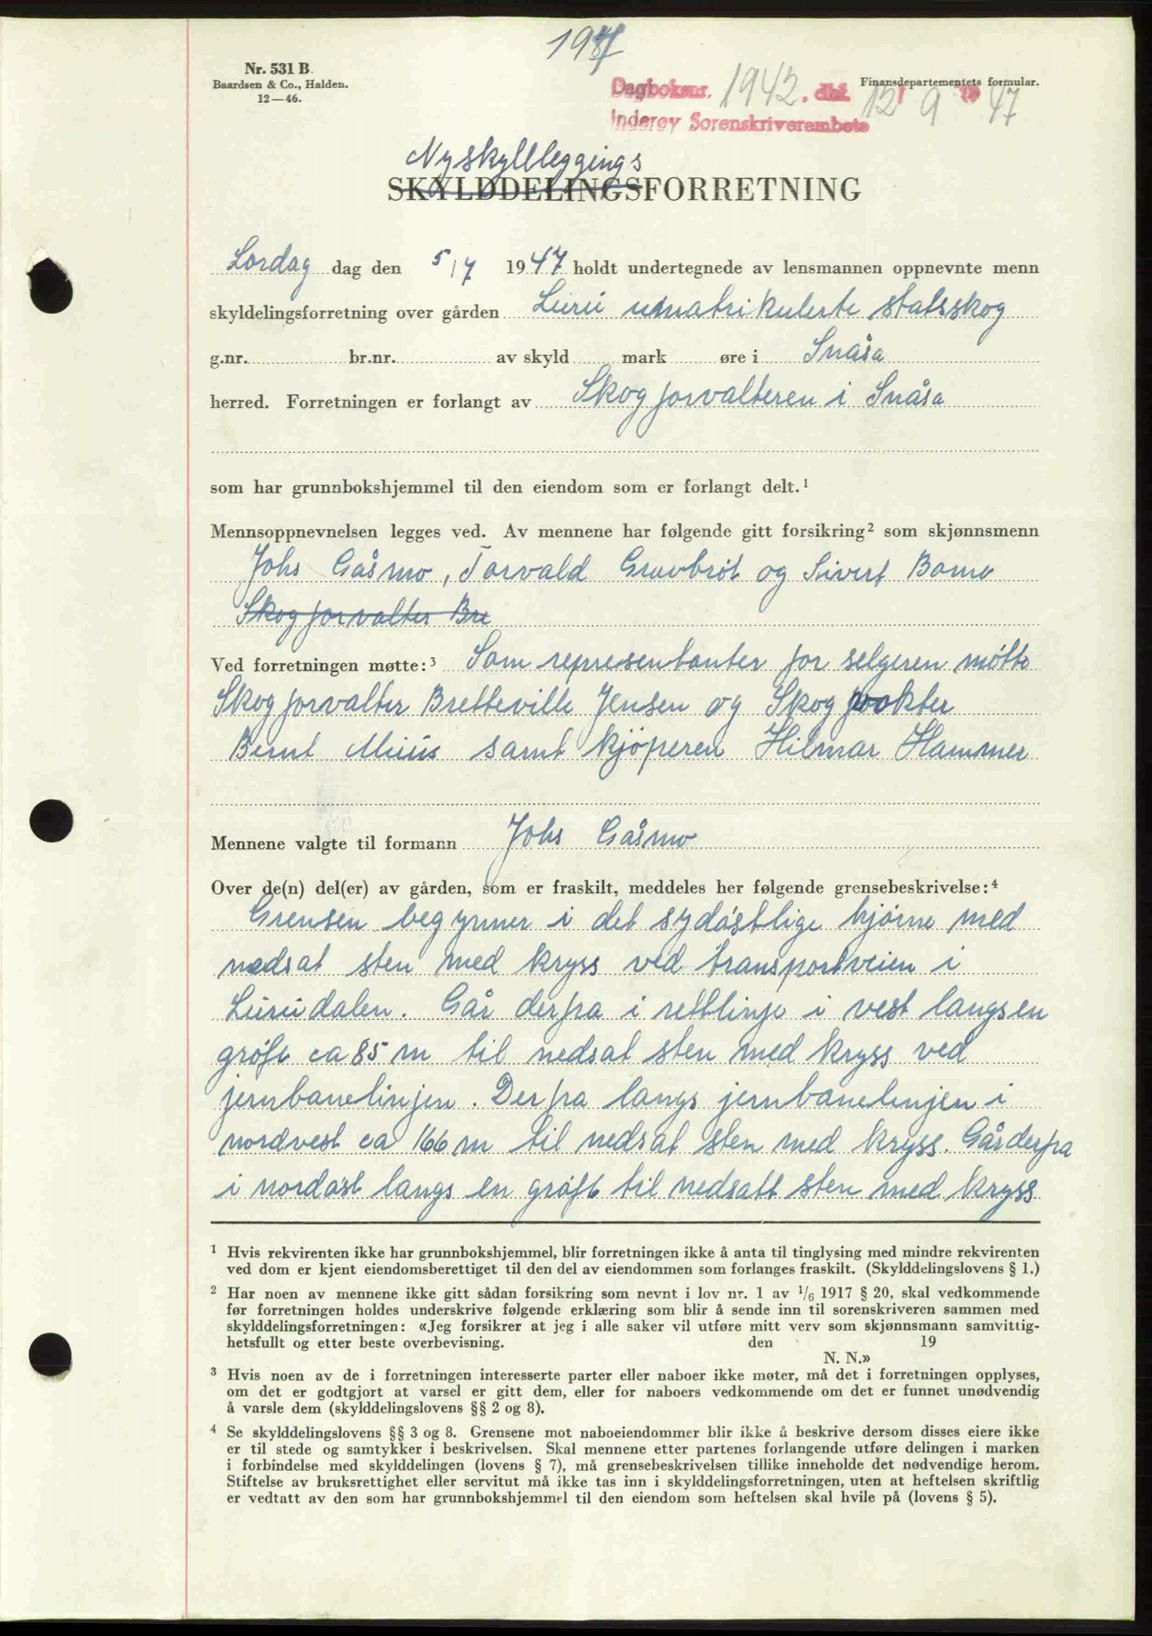 1947
Nr. 531 B.
Baardsen & Co., Halden.
12—46.
Dagboksnr. 1942, dbf. 12/9 1947
Finansdepartementets formular.
Inderøy Sorenskriverembete
Nyskylleggings
SKYLDDELINGSFORRETNING
Lørdag dag den 5/7 1947 holdt undertegnede av lensmannen oppnevnte menn
skyldelingsforretning over gården Lurü umatrikulerte statsskog
g.nr. br.nr. av skyld mark øre i Snåsa
herred. Forretningen er forlangt av Skogforvalteren i Snåsa
som har grunnbokshjemmel til den eiendom som er forlangt delt.¹
Mennsoppnevnelsen legges ved. Av mennene har følgende gitt forsikring² som skjønnsmenn
Johs Gåsmo, Torvald Gravbröt og Sivert Bomo
Skogforvalter Bre
Ved forretningen møtte:³ Som representanter for selgeren møtte
Skogforvalter Bretteville Jensen og Skogvokter
Bernt samt kjöperen Hilmar Hammer
Mennene valgte til formann Johs Gåsmo
Over de(n) del(er) av gården, som er fraskilt, meddeles her følgende grensebeskrivelse:⁴
Grensen begynner i det sydöstlige hjörne med
nedsat sten med kryss ved transportveien i
Lurüdalen. Går derfra i rettlinje i vest langs en
gröft ca 85 m til nedsat sten med kryss ved
jernbanelinjen. Derfra langs jernbanelinjen i
nordvest ca 166 m til nedsat sten med kryss. Går derfra
i nordöst langs en gröft til nedsatt sten med kryss
¹ Hvis rekvirenten ikke har grunnbokshjemmel, blir forretningen ikke å anta til tinglysing med mindre rekvirenten
ved dom er kjent eiendomsberettiget til den del av eiendommen som forlanges fraskilt. (Skylddelingslovens § 1.)
² Har noen av mennene ikke gitt sådan forsikring som nevnt i lov nr. 1 av 1/6 1917 § 20, skal vedkommende
før forretningen holdes underskrive følgende erklæring som blir å sende inn til sorenskriveren sammen med
skylddelingsforretningen: «Jeg forsikrer at jeg i alle saker vil utføre mitt verv som skjønnsmann samvittig-
hetsfullt og etter beste overbevisning. den 19
N. N.»
³ Hvis noen av de i forretningen interesserte parter eller naboer ikke møter, må det i forretningen opplyses,
om det er godtgjort at varsel er gitt dem, eller for naboers vedkommende om det er funnet unødvendig
å varsle dem (skylddelingslovens §§ 2 og 8).
⁴ Se skylddelingslovens §§ 3 og 8. Grensene mot naboeiendommer blir ikke å beskrive dersom disses eiere ikke
er til stede og samtykker i beskrivelsen. Skal mennene etter partenes forlangende utføre delingen i marken
i forbindelse med skylddelingen (lovens § 7), må grensebeskrivelsen tillike inneholde det nødvendige herom.
Stiftelse av bruksrettighet eller servitut må ikke tas inn i skylddelingsforretningen, uten at heftelsen skriftlig
er vedtatt av den som har grunnbokshjemmel til den eiendom som heftelsen skal hvile på (lovens § 5).